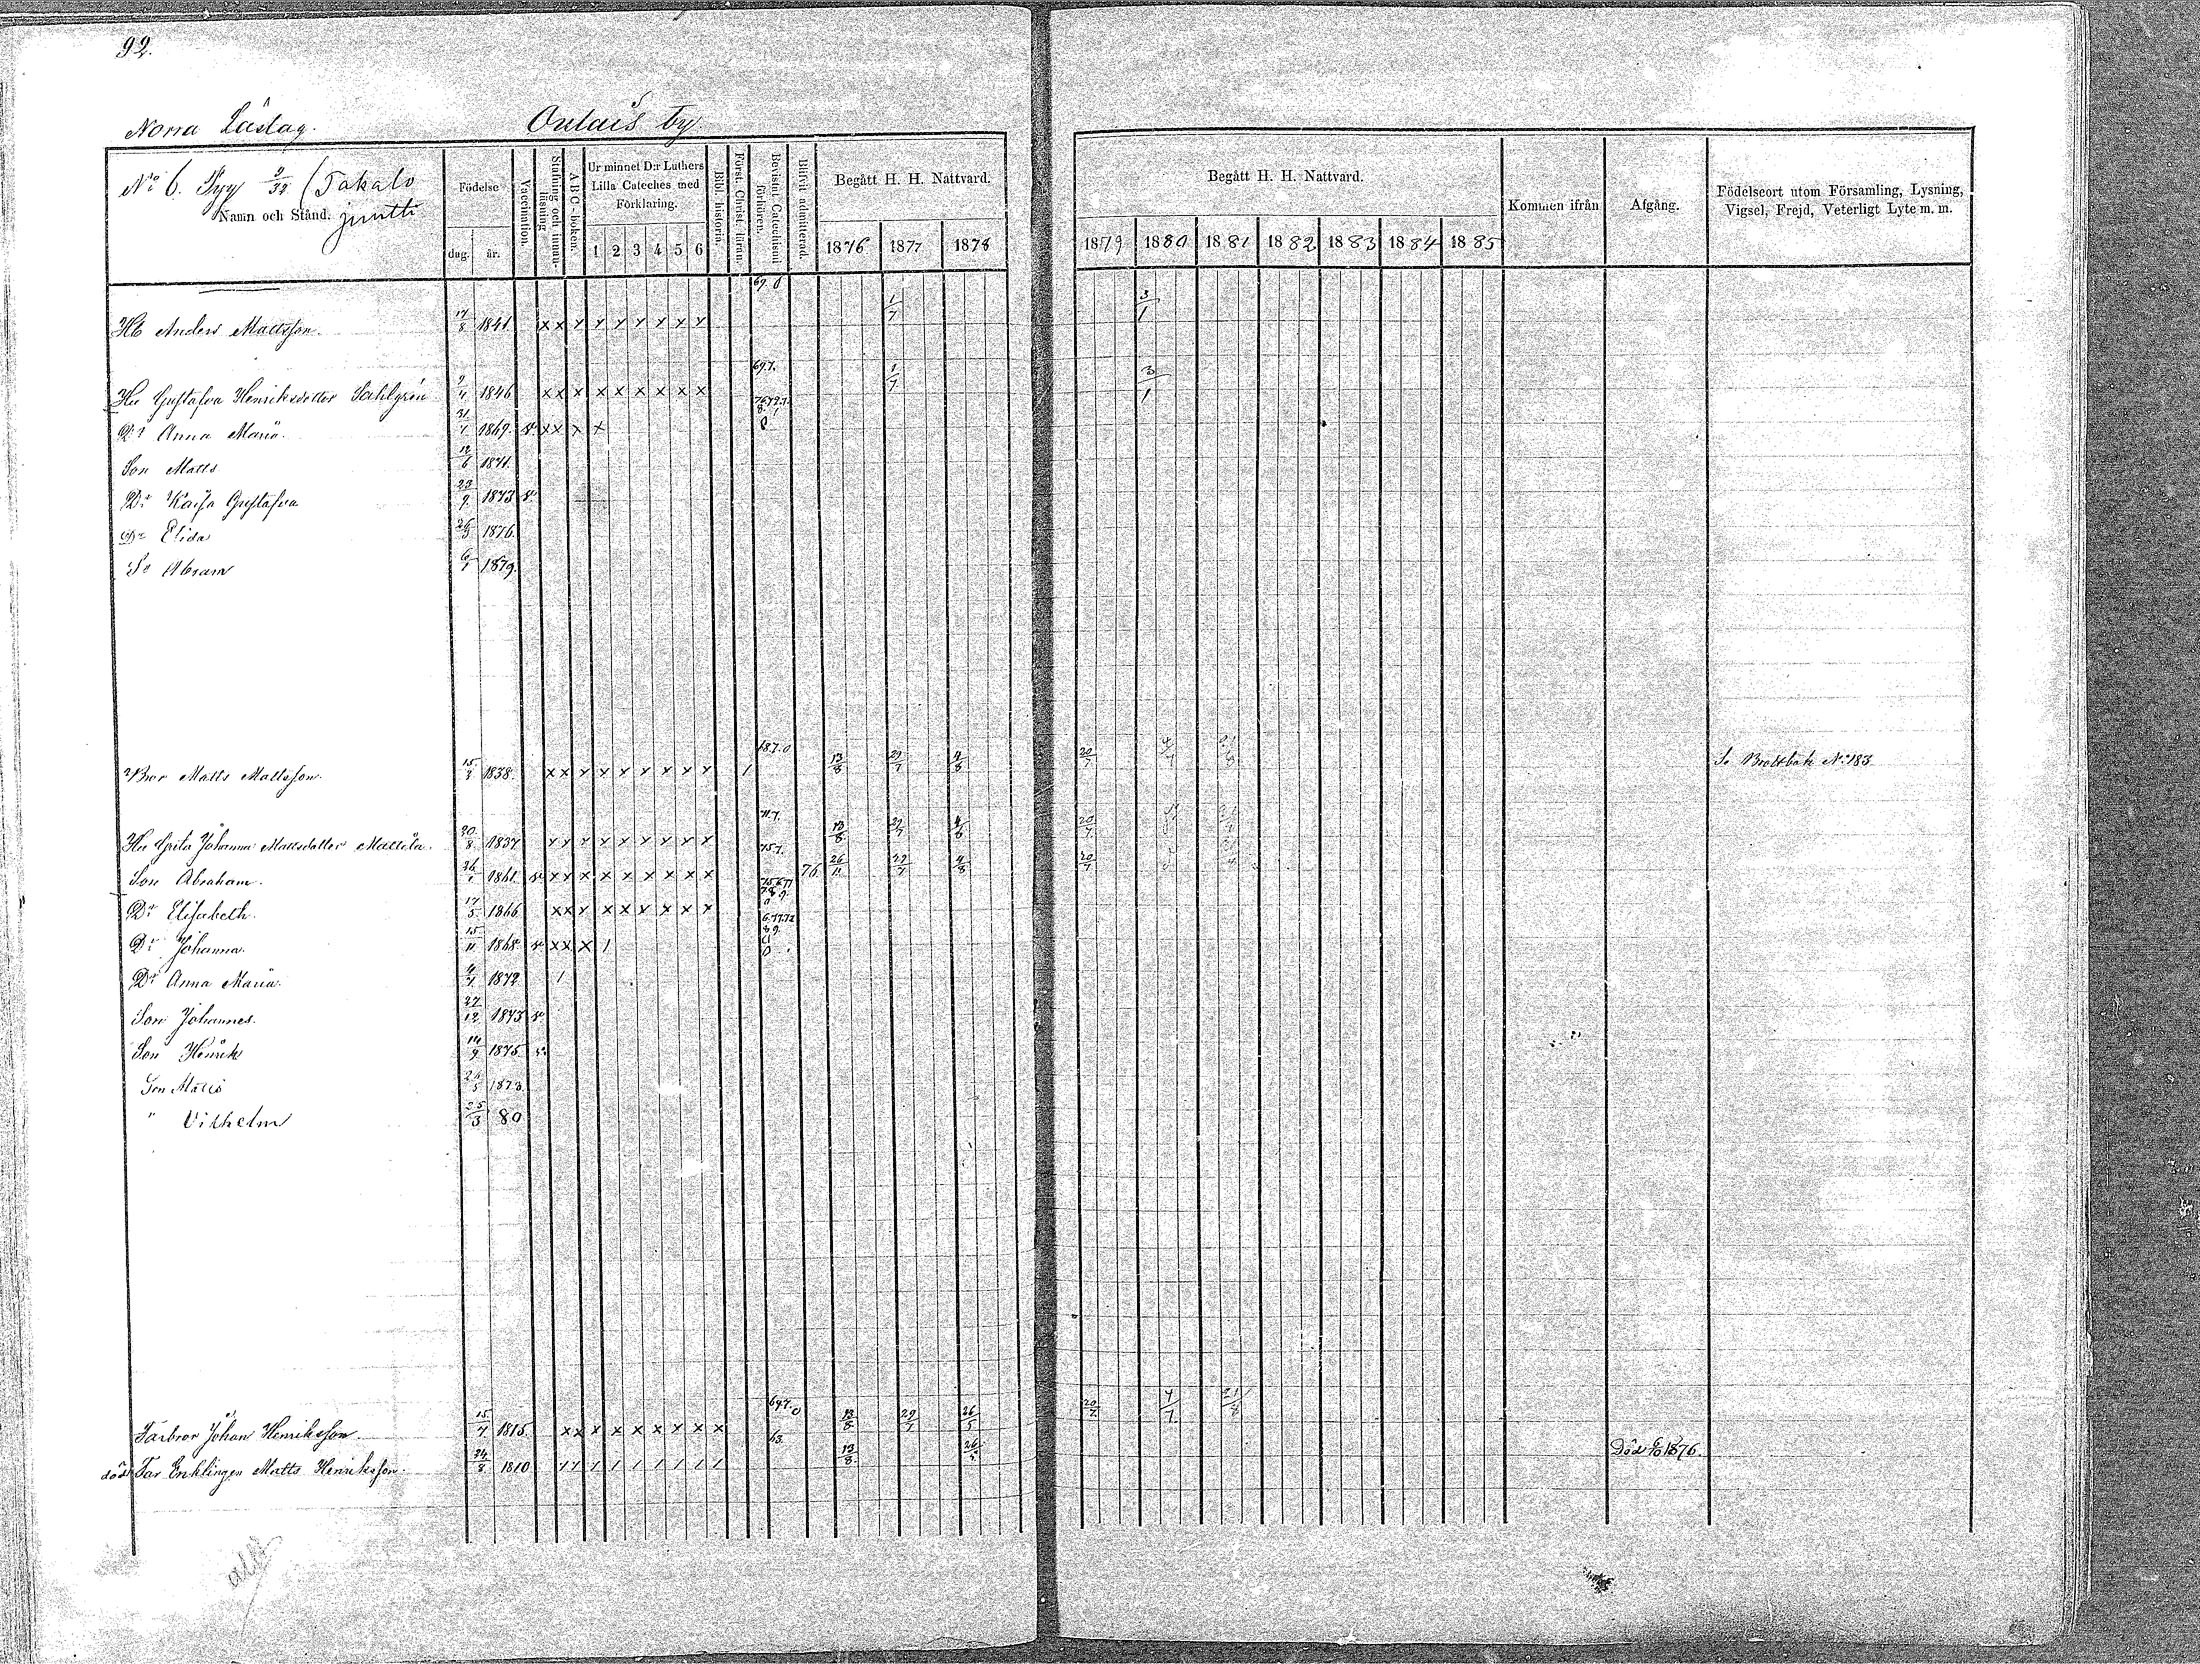 92.
Norra Läslag. Oulais by
No 6. Pyy 3/32 (Takalo
Namn och Stånd. juntti
Födelse
dag. år.
Vaccination.
Stafning och innan-läsning
A B C-boken.
Ur minnet D:r Luthers Lilla Cateches med Förklaring.
1 2 3 4 5 6
Bibl. historia.
Först. Christi. läran.
Bevistat Catechismi förhören.
Blifvit admitterad.
Begått H. H. Nattvard.
1876 1877 1878
Begått H. H. Nattvard.
1879 1880 1881 1882 1883 1884 1885
Kommen ifrån
Afgång.
Födelseort utom Församling, Lysning, Vigsel, Frejd, Veterligt Lyte m. m.
69. 0
Hb Anders Mattsson. 17/8 1841. x x x x x x x x x 1/7 3/1
Hu Gustafva Henriksdotter Sahlgrén 9/4 1846 x x x x x x x x x 69.7. 1/7 3/1
Dr Anna Maria. 31/1 1869. x x x x
Son Matts 12/6 1871.
Dr Kaisa Gustafva 23/9 1873
Dr Elida 26/3 1876.
So Abram 6/1 1879.
Bror Matts Mattsson. 15/3 1838. x x x x x x x x x 1 13/8 29/7 4/8 20/7 4/7 21/8 So Brottbok No 183
Hu Greta Johanna Mattsdotter Mattila. 20/8 1837 x x x x x x x x x 71.7. 13/8 29/7 4/8 20/7
Son Abraham. 26/1 1861 x x x x x x x x x 75.7. 76 26/11 29/7 4/8 20/7
Dr Elisabeth. 17/5 1866 x x x x x x x x x
Dr Johanna. 15/11 1868 x x x 1
Dr Anna Maria. 4/7 1872 1
Son Johannes. 27/12 1873
Son Henrik 14/9 1875
Son Matts 26/5 1878
" Vilhelm 25/3 80
Farbror Johan Henriksson. 15/7 1815. x x x x x x x x x 69.7. 0 13/8 29/7 26/5 20/7 4/7 21/8
död Far Enklingen Matts Henriksson. 24/8 1810 1 1 1 1 1 1 1 1 1 63. 13/8 26/5 Död 1876.